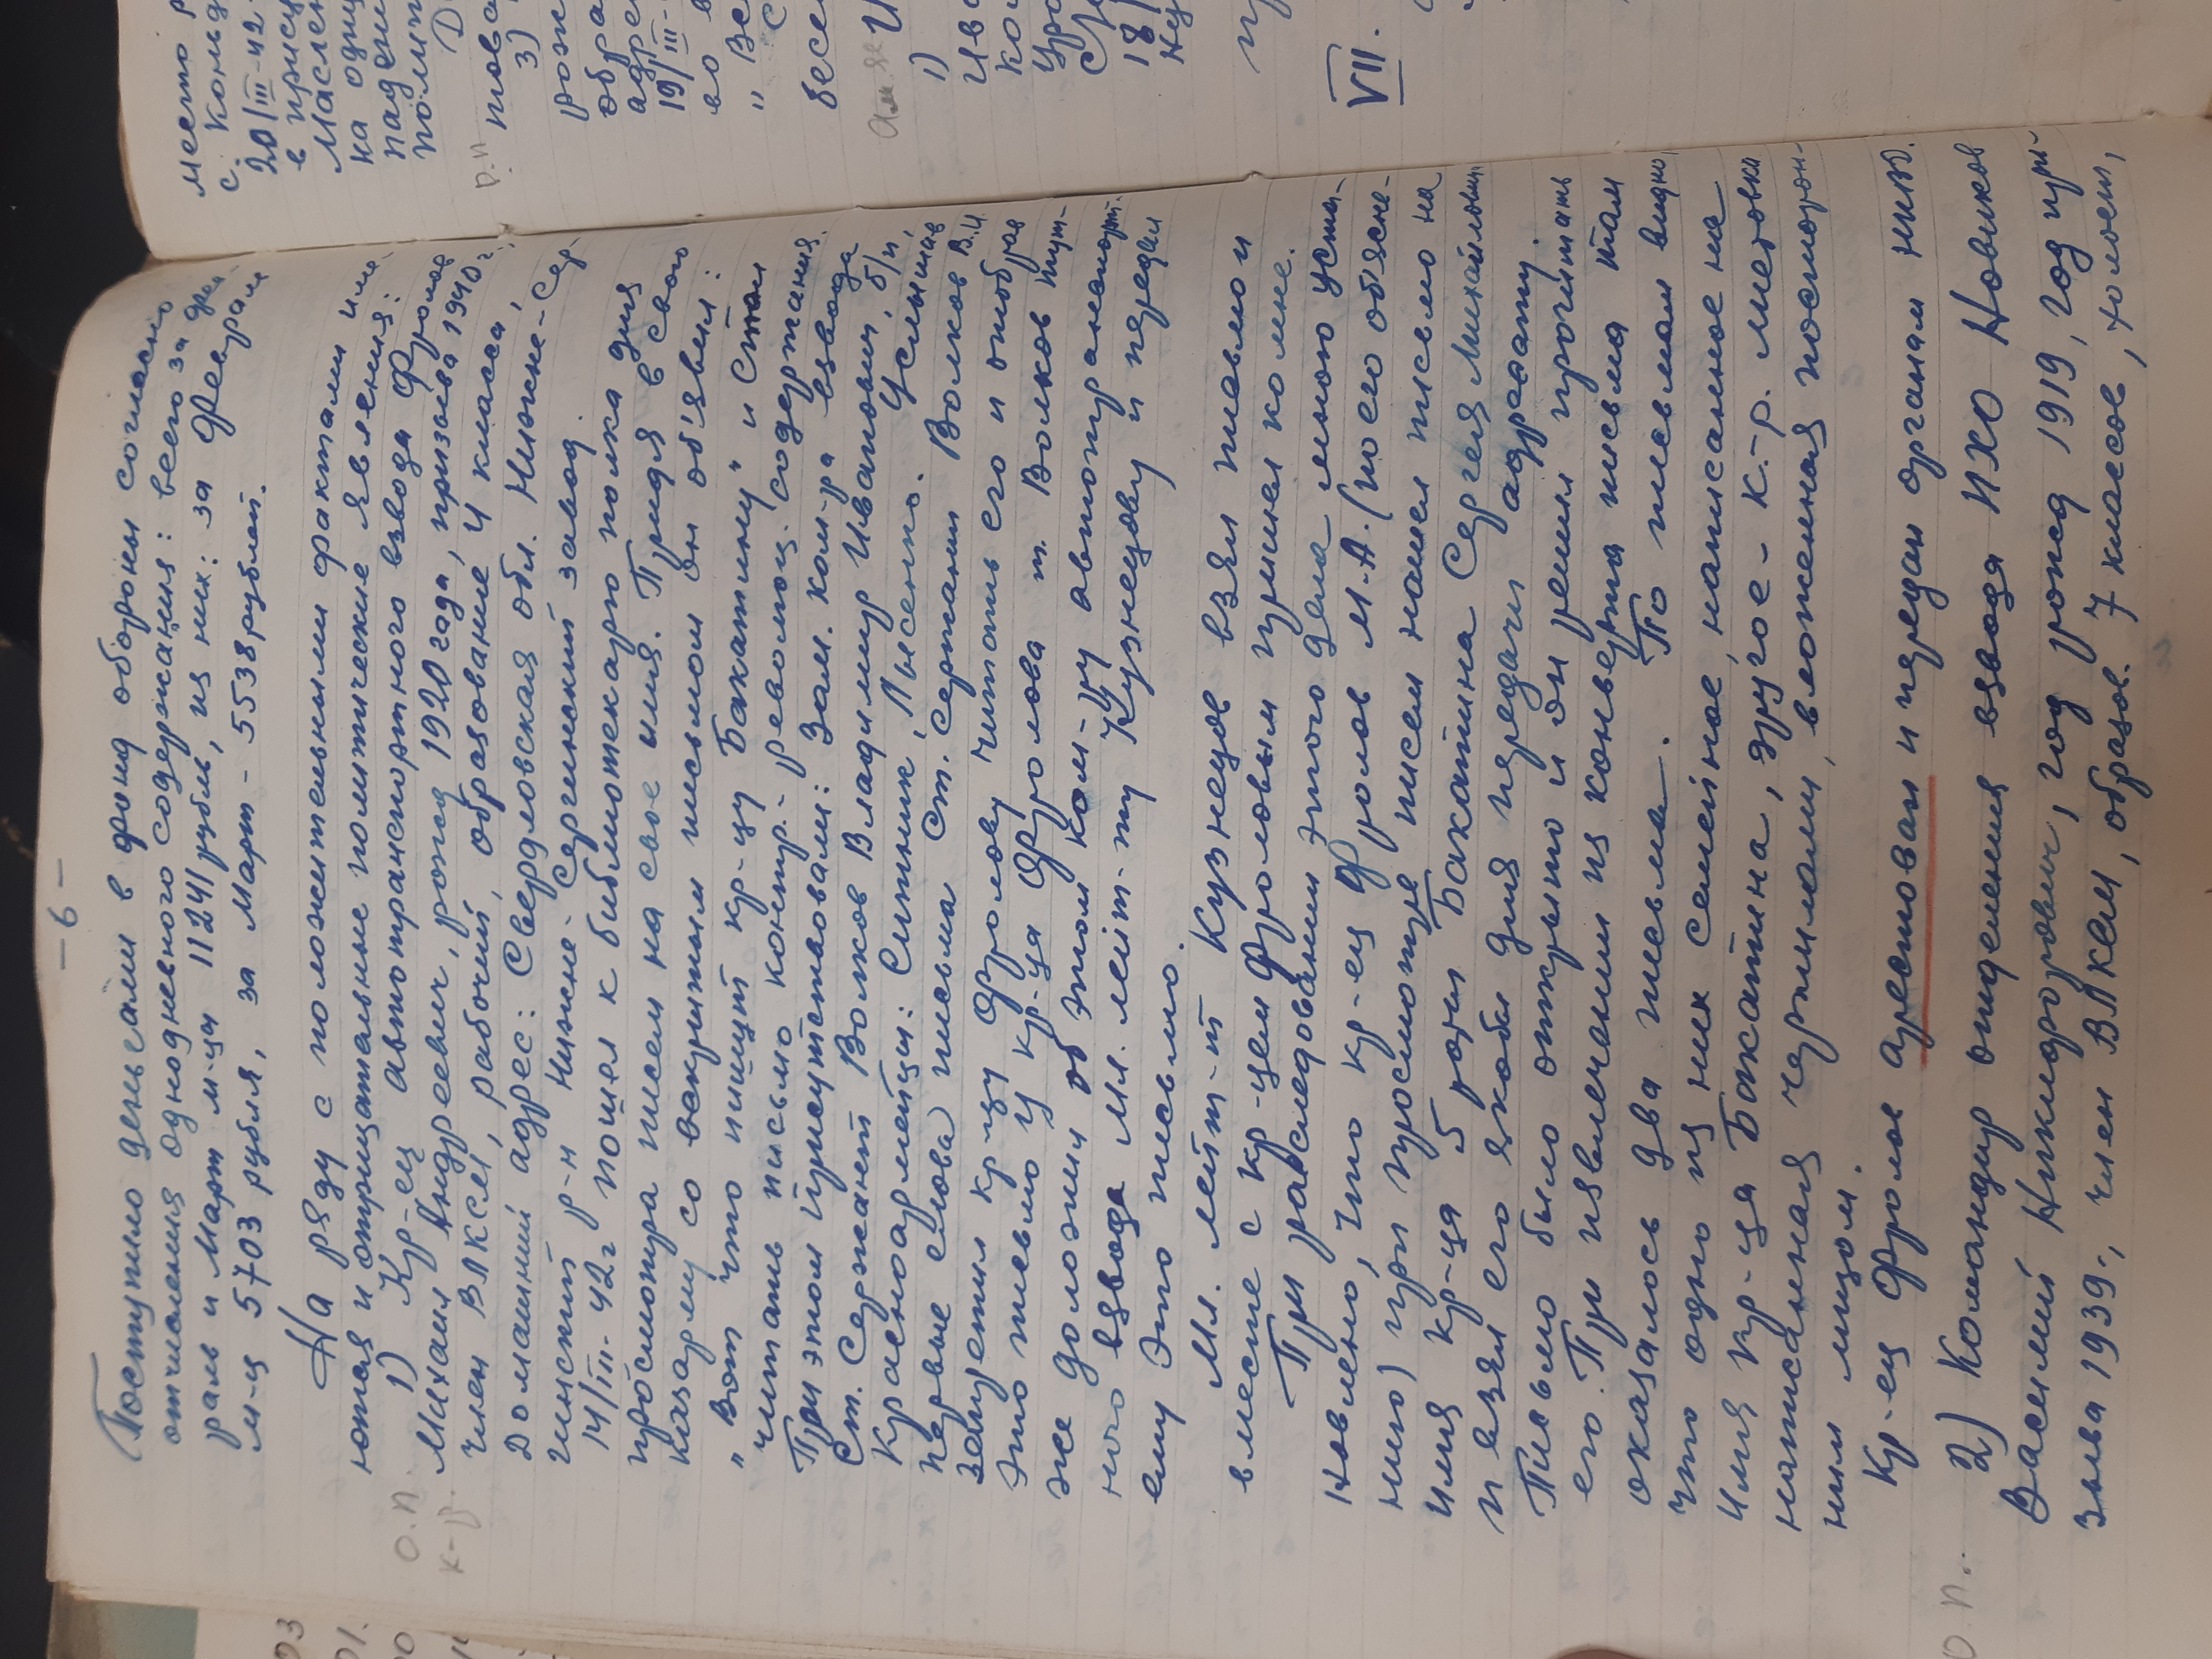 -6-
Поступило деньгами в фонд обороны согласно
отчисления однодневного содержания: всего за фев-
раль и Март м-цы 11241 рубль, из них: за Февраль
м-ц 5703 рубля, за Март - 5538 рублей.
На ряду с положительными фактами име-
ются и отрицательные политические явления:
О.П. 1) Кр-ец автотранспортного взвода Фролов
к-р. Михаил Андреевич, рожд 1920 года, призыва 1940 г.,
член ВЛКСМ, рабочий, образование 4 класса,
домашний адрес: Свердловская обл. Нижне-Сер-
гинский р-н Нижне-Сергинский завод.
14/III-42г пошел к библиотекарю полка для
просмотра писем на свое имя. Придя в свою
казарму со вскрытым письмом он об'явил:
"Вот что пишут кр-цу Бакатину" и стал
читать письмо контр.-революц. содержания.
При этом присутствовали: Зам. ком-ра взвода
Ст. Сержант Волков Владимир Иванович, б/п,
Красноармейцы: Ситник, Лысенко. Услышав
первые слова письма Ст. Сержант Волков В.И.
запретил кр-цу Фролову читать его и отобрал
это письмо у кр-ца Фролова т. Волков тут-
же доложил об этом ком-ру автотранспорт-
ного взвода мл. лейт-ту Кузнецову и передал
ему это письмо.
Мл. лейт-т Кузнецов взял письмо и
вместе с кр-цем Фроловым пришел ко мне.
При расследовании этого дела мною уста-
новлено, что кр-ец Фролов М.А. (по его об'ясне-
нию) при просмотре писем нашел письмо на
имя кр-ца 5 роты Бакатина Сергея Михайлович
и взял его якобы для передачи адресату.
Письмо было открыто и он решил прочитать
его. При извлечении из конверта письма там
оказалось два письма. По письмам видно,
что одно из них семейное, написанное на
имя кр-ца Бакатина, другое - к.-р. листовка
написанная чернилами, вложенная посторон-
ним лицом.
Кр-ец Фролов арестован и передан органам НКВД.
О.П. 2) Командир отделения взвода ПХО Новиков
Василий Никифорович, год рожд 1919, год при-
зыва 1939., член ВЛКСМ, образов. 7 классов, холост,
место р
с. Конд
20/III-42-
в прису
Маслен
на одну
падени
полит
Д
р.п това
3)
рож
обра
адрес
19/III-
во в
"Все
С
бесе
1)
Ива
ко
Уро
Сл
18/
Ку
VII.
03
01.
00